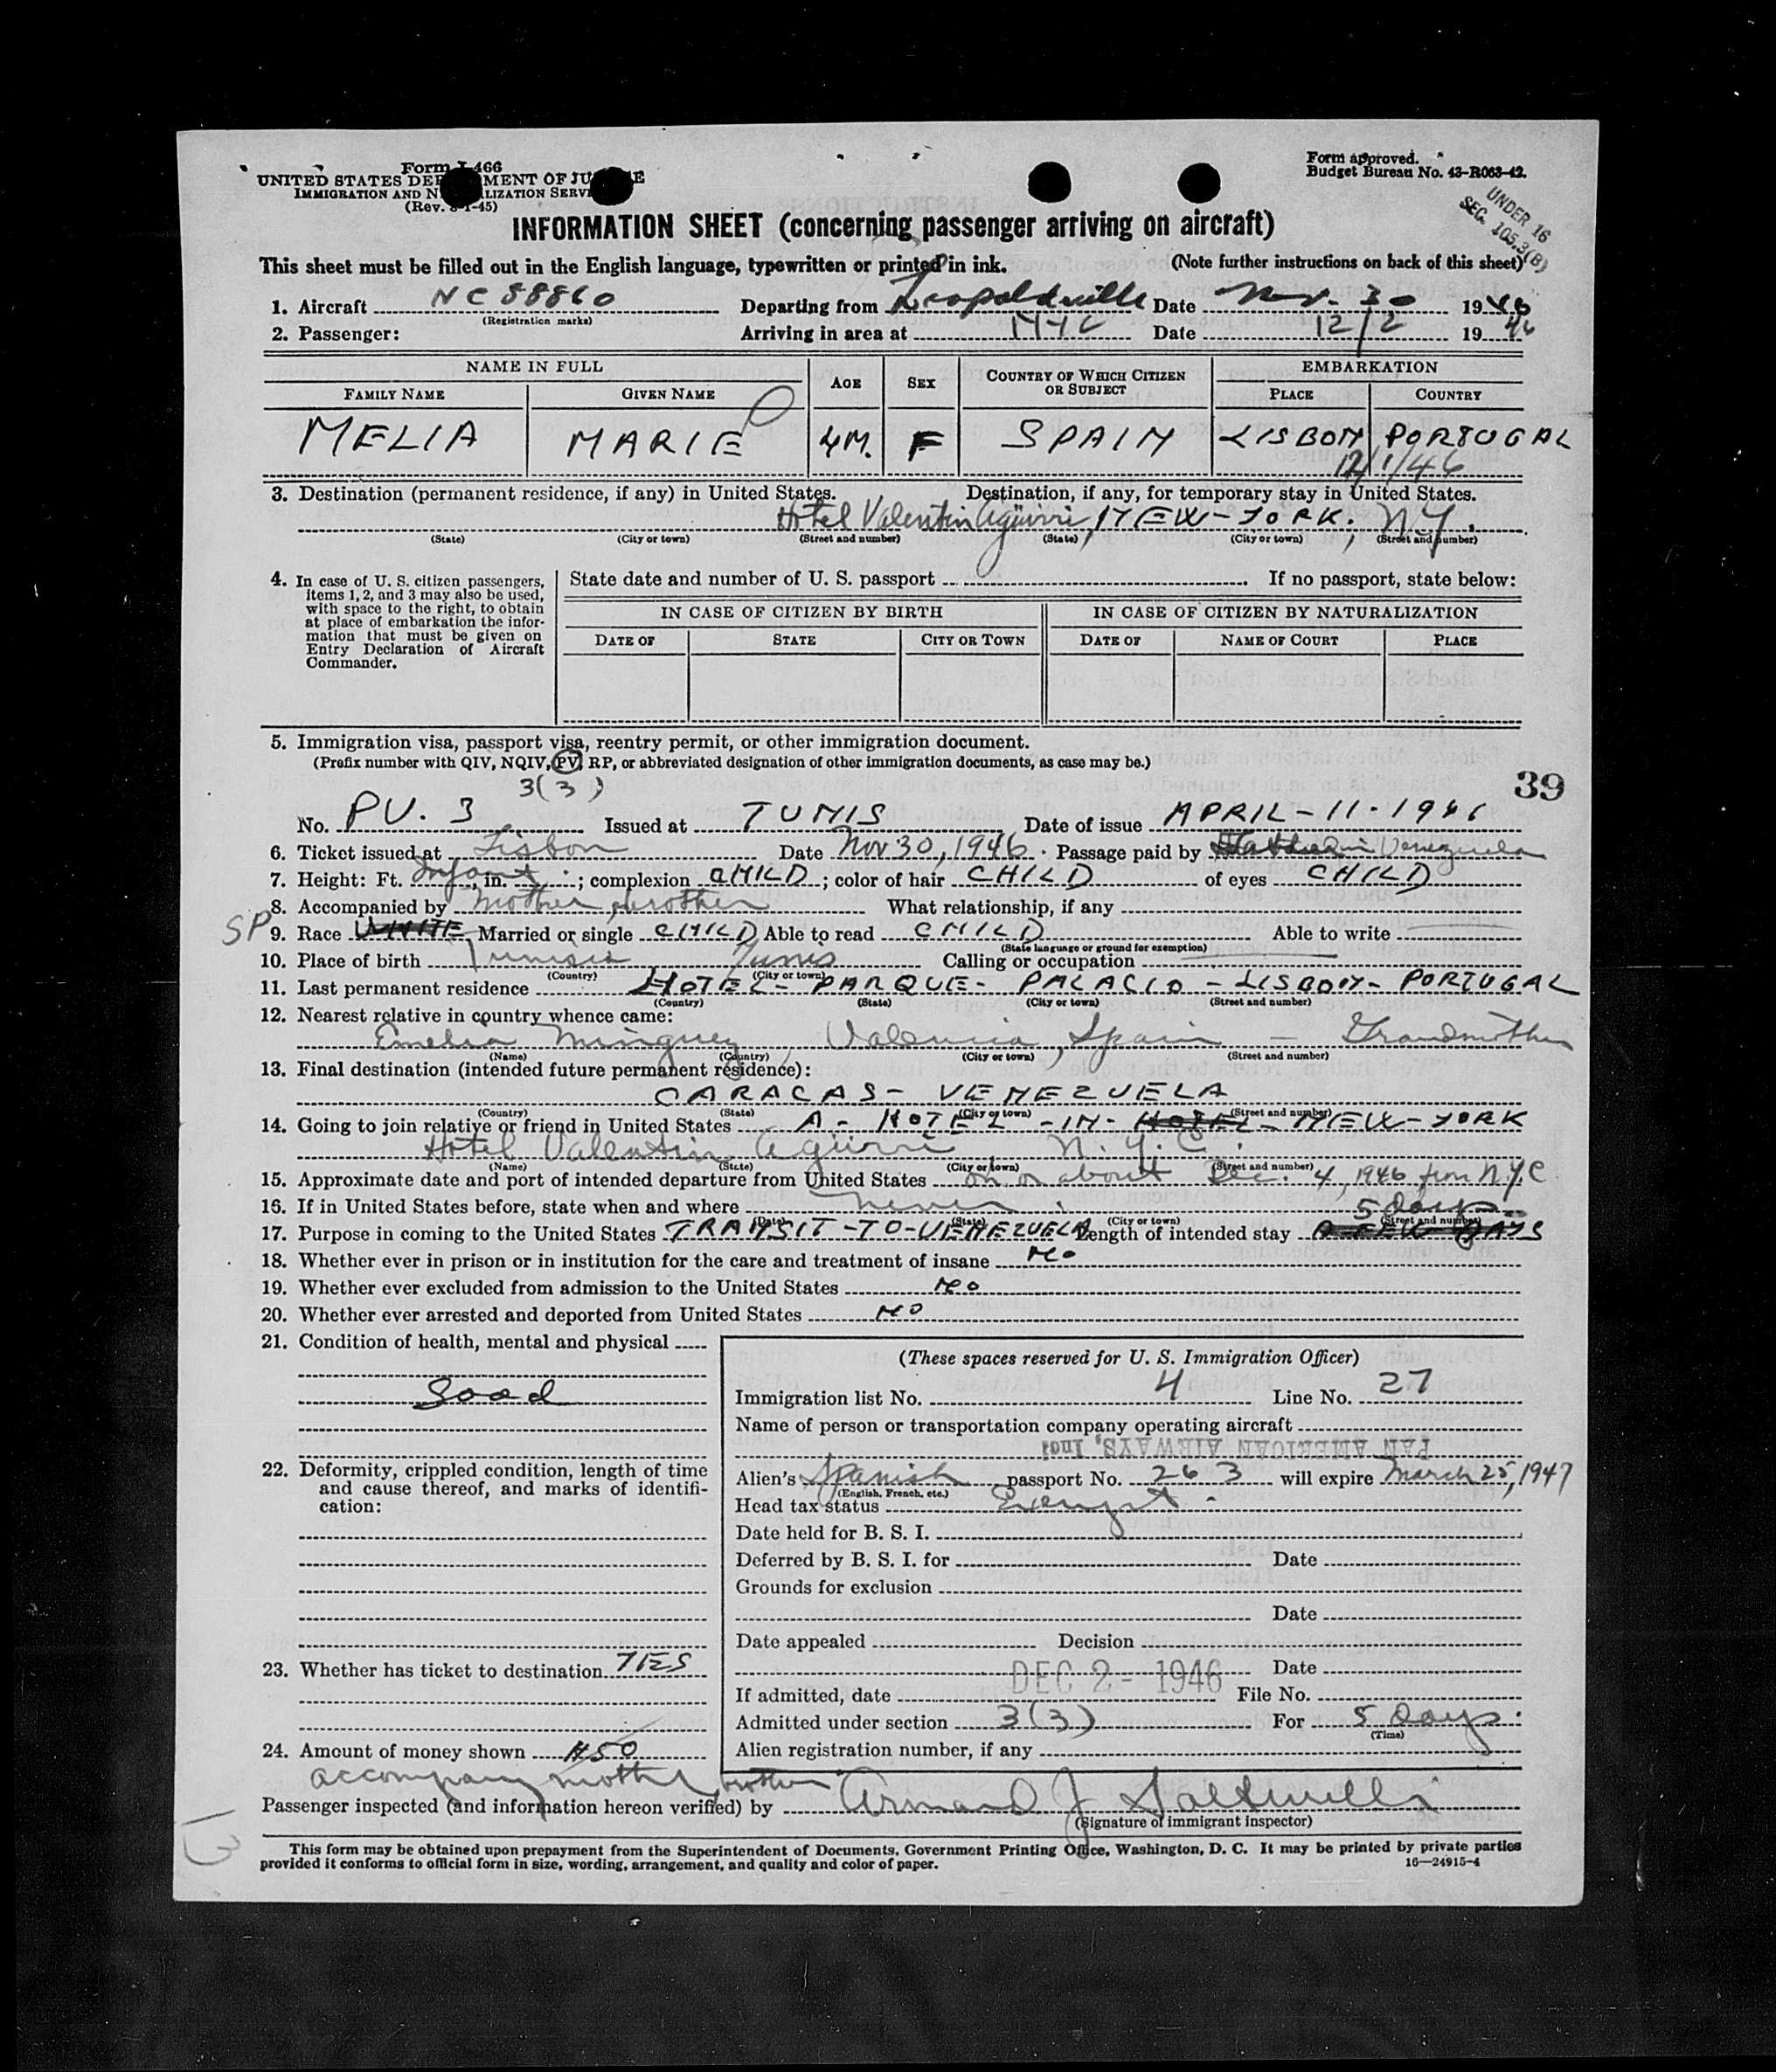 Form I-466
UNITED STATES DEPARTMENT OF JUSTICE
IMMIGRATION AND NATURALIZATION SERVICE
(Rev. 8-1-45)
Form approved.
Budget Bureau No. 43-R063-42.
UNDER 16
SEC. 105.3(B)
INFORMATION SHEET (concerning passenger arriving on aircraft)
This sheet must be filled out in the English language, typewritten or printed in ink. (Note further instructions on back of this sheet)
1. Aircraft NC 88860 Departing from Leopoldville Date Nov. 30 1946
(Registration marks)
2. Passenger: Arriving in area at NYC Date 12/2 1946
NAME IN FULL AGE SEX COUNTRY OF WHICH CITIZEN OR SUBJECT EMBARKATION
FAMILY NAME GIVEN NAME PLACE COUNTRY
MELIA MARIE 4M. F SPAIN LISBON PORTUGAL
12/1/46
3. Destination (permanent residence, if any) in United States. Destination, if any, for temporary stay in United States.
Hotel Valentin Agüirri, NEW-YORK, N.Y.
(State) (City or town) (Street and number) (State) (City or town) (Street and number)
4. In case of U. S. citizen passengers, items 1, 2, and 3 may also be used, with space to the right, to obtain at place of embarkation the information that must be given on Entry Declaration of Aircraft Commander.
State date and number of U. S. passport If no passport, state below:
IN CASE OF CITIZEN BY BIRTH IN CASE OF CITIZEN BY NATURALIZATION
DATE OF STATE CITY OR TOWN DATE OF NAME OF COURT PLACE
5. Immigration visa, passport visa, reentry permit, or other immigration document.
(Prefix number with QIV, NQIV, PV, RP, or abbreviated designation of other immigration documents, as case may be.)
39
3(3)
No. PV. 3 Issued at TUNIS Date of issue APRIL-11-1946
6. Ticket issued at Lisbon Date Nov 30, 1946 Passage paid by Venezuela
7. Height: Ft. Infant, in. ; complexion CHILD; color of hair CHILD of eyes CHILD
8. Accompanied by mother, brother What relationship, if any
SP 9. Race WHITE Married or single CHILD Able to read CHILD Able to write
(State language or ground for exemption)
10. Place of birth Tunisia Tunis Calling or occupation
(Country) (City or town)
11. Last permanent residence HOTEL- PARQUE- PALACIO - LISBON- PORTUGAL
(Country) (State) (City or town) (Street and number)
12. Nearest relative in country whence came:
Emelia Minguez, Valencia, Spain - Grandmother
(Name) (Country) (City or town) (Street and number)
13. Final destination (intended future permanent residence):
CARACAS- VENEZUELA
(Country) (State) (City or town) (Street and number)
14. Going to join relative or friend in United States A- HOTEL -IN- HOTEL- NEW-YORK
Hotel Valentin Agüirri N.Y.C.
(Name) (State) (City or town) (Street and number)
15. Approximate date and port of intended departure from United States on or about Dec. 4, 1946 from N.Y.C
16. If in United States before, state when and where never.
(Date) (State) (City or town) (Street and number)
5 days
17. Purpose in coming to the United States TRANSIT-TO-VENEZUELA Length of intended stay A FEW DAYS
18. Whether ever in prison or in institution for the care and treatment of insane NO
19. Whether ever excluded from admission to the United States NO
20. Whether ever arrested and deported from United States NO
21. Condition of health, mental and physical
Good
22. Deformity, crippled condition, length of time and cause thereof, and marks of identification:
23. Whether has ticket to destination YES
24. Amount of money shown #50
accompany mother, brother
(These spaces reserved for U. S. Immigration Officer)
Immigration list No. 4 Line No. 27
Name of person or transportation company operating aircraft
PAN AMERICAN AIRWAYS, Inc.
Alien's Spanish passport No. 263 will expire March 25, 1947
(English, French, etc.)
Head tax status Exempt.
Date held for B. S. I.
Deferred by B. S. I. for Date
Grounds for exclusion
Date
Date appealed Decision
Date
If admitted, date DEC 2 - 1946 File No.
Admitted under section 3(3) For 5 Days.
(Time)
Alien registration number, if any
Passenger inspected (and information hereon verified) by Armand J
(Signature of immigrant inspector)
This form may be obtained upon prepayment from the Superintendent of Documents, Government Printing Office, Washington, D. C. It may be printed by private parties
provided it conforms to official form in size, wording, arrangement, and quality and color of paper. 16—24915-4